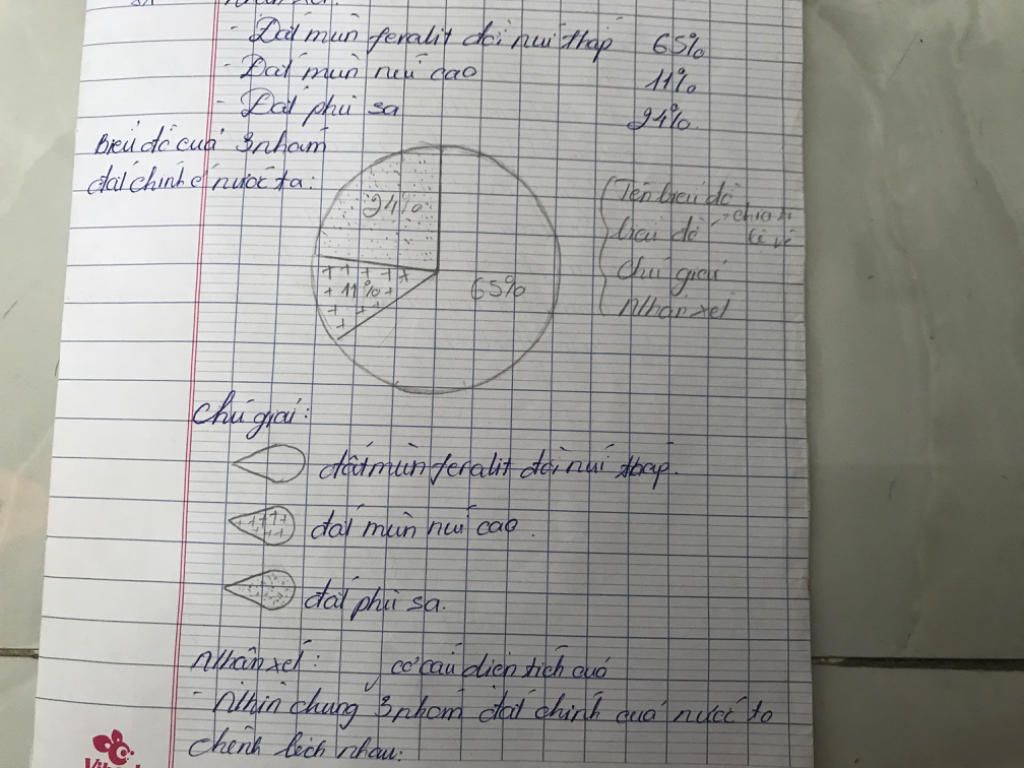 - Đất mùn feralit đồi núi thấp 65%
- Đất mùn núi cao 11%
- Đất phù sa 24%
Biểu đồ của 3 nhóm
đất chính ở nước ta:
24%
11%
65%
Tên biểu đồ
biểu đồ - chia tỉ
lệ vẽ
Chú giải
Nhận xét
Chú giải:
đất mùn feralit đồi núi thấp.
đất mùn núi cao.
đất phù sa.
Nhận xét: cơ cấu diện tích của
- Nhìn chung 3 nhóm đất chính của nước ta
chênh lệch nhau: